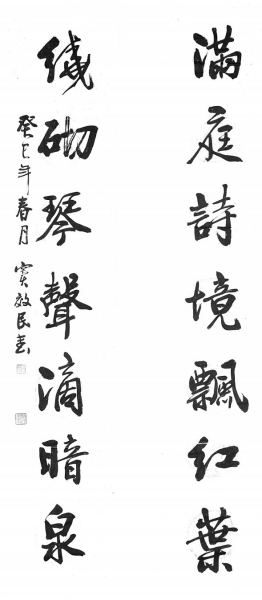 滿庭詩境飄紅葉
繞砌琴聲滴暗泉
癸巳年春月 竇效民書